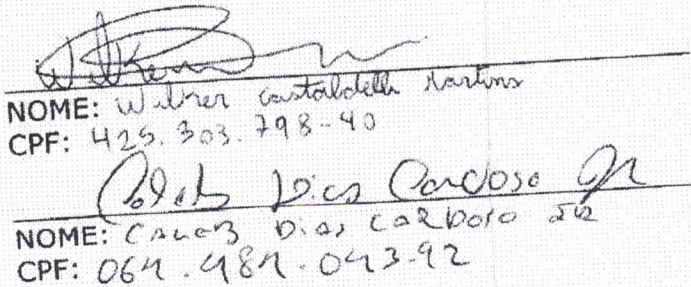 Wilker
NOME: Wilker Castaldelli Martins
CPF: 425.303.798-40
Caleb Dias Cardoso Jr
NOME: CALEB Dias CARDOSO JR
CPF: 064.484.043-92